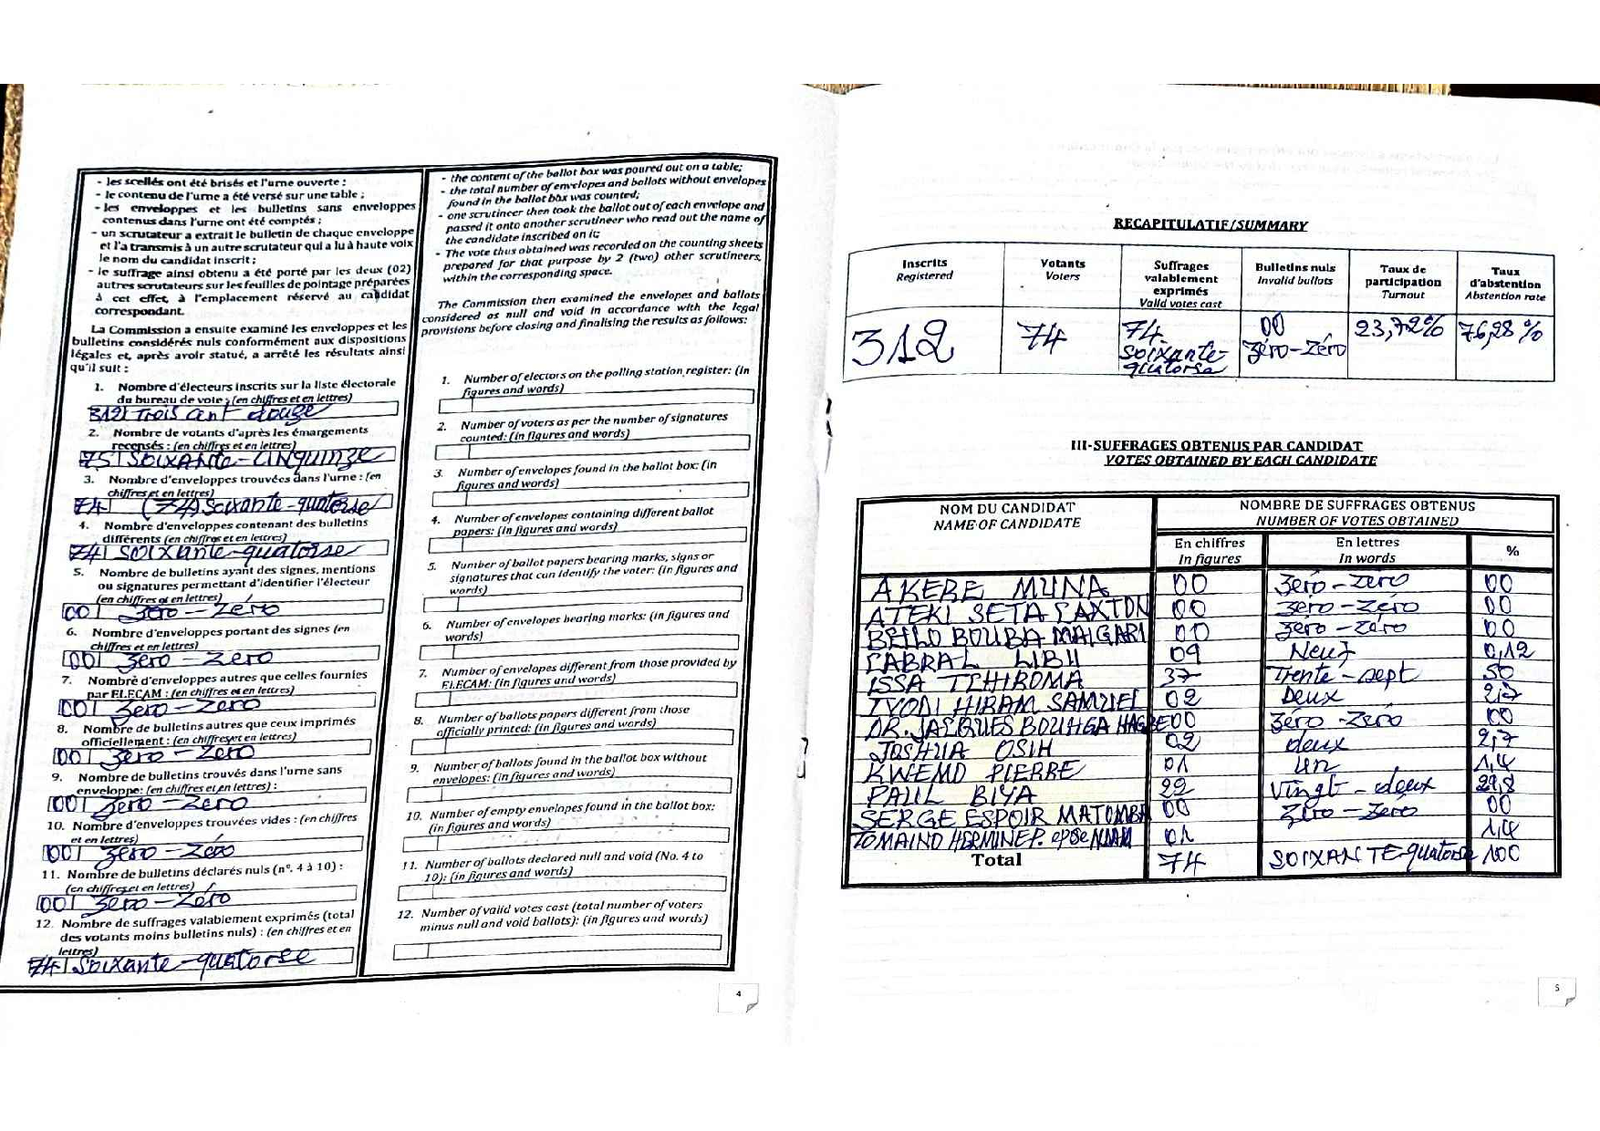 - les scellés ont été brisés et l'urne ouverte ;
- le contenu de l'urne a été versé sur une table ;
- les enveloppes et les bulletins sans enveloppes
contenus dans l'urne ont été comptés ;
- un scrutateur a extrait le bulletin de chaque enveloppe
et l'a transmis à un autre scrutateur qui a lu à haute voix
le nom du candidat inscrit ;
- le suffrage ainsi obtenu a été porté par les deux (02)
autres scrutateurs sur les feuilles de pointage préparées
à cet effet, à l'emplacement réservé au candidat
correspondant.
La Commission a ensuite examiné les enveloppes et les
bulletins considérés nuls conformément aux dispositions
légales et, après avoir statué, a arrêté les résultats ainsi
qu'il suit :
1. Nombre d'électeurs inscrits sur la liste électorale
du bureau de vote : (en chiffres et en lettres)
312 Trois cent douze
2. Nombre de votants d'après les émargements
recensés : (en chiffres et en lettres)
75 SOIXANTE-CINQUINZE
3. Nombre d'enveloppes trouvées dans l'urne : (en
chiffres et en lettres)
74 (74) Soixante-quatorse
4. Nombre d'enveloppes contenant des bulletins
différents (en chiffres et en lettres)
74 SOIXANTE-quatorse
5. Nombre de bulletins ayant des signes, mentions
ou signatures permettant d'identifier l'électeur
(en chiffres et en lettres)
00 Zéro-Zéro
6. Nombre d'enveloppes portant des signes (en
chiffres et en lettres)
00 Zéro-Zéro
7. Nombre d'enveloppes autres que celles fournies
par ELECAM : (en chiffres et en lettres)
00 Zéro-Zéro
8. Nombre de bulletins autres que ceux imprimés
officiellement : (en chiffres et en lettres)
00 Zéro-Zéro
9. Nombre de bulletins trouvés dans l'urne sans
enveloppe: (en chiffres et en lettres) :
00 Zéro-Zéro
10. Nombre d'enveloppes trouvées vides : (en chiffres
et en lettres)
00 Zéro-Zéro
11. Nombre de bulletins déclarés nuls (n°. 4 à 10) :
(en chiffres et en lettres)
00 Zéro-Zéro
12. Nombre de suffrages valablement exprimés (total
des votants moins bulletins nuls) : (en chiffres et en
lettres)
74 Soixante-quatorse
- the content of the ballot box was poured out on a table;
- the total number of envelopes and ballots without envelopes
found in the ballot box was counted;
- one scrutineer then took the ballot out of each envelope and
passed it onto another scrutineer who read out the name of
the candidate inscribed on it;
- The vote thus obtained was recorded on the counting sheets
prepared for that purpose by 2 (two) other scrutineers,
within the corresponding space.
The Commission then examined the envelopes and ballots
considered as null and void in accordance with the legal
provisions before closing and finalising the results as follows:
1. Number of electors on the polling station register: (in
figures and words)
2. Number of voters as per the number of signatures
counted: (in figures and words)
3. Number of envelopes found in the ballot box: (in
figures and words)
4. Number of envelopes containing different ballot
papers: (in figures and words)
5. Number of ballot papers bearing marks, signs or
signatures that can identify the voter: (in figures and
words)
6. Number of envelopes bearing marks: (in figures and
words)
7. Number of envelopes different from those provided by
ELECAM: (in figures and words)
8. Number of ballots papers different from those
officially printed: (in figures and words)
9. Number of ballots found in the ballot box without
envelopes: (in figures and words)
10. Number of empty envelopes found in the ballot box:
(in figures and words)
11. Number of ballots declared null and void (No. 4 to
10): (in figures and words)
12. Number of valid votes cast (total number of voters
minus null and void ballots): (in figures and words)
4
RECAPITULATIF/SUMMARY
Inscrits Registered
Votants Voters
Suffrages valablement exprimés Valid votes cast
Bulletins nuls Invalid ballots
Taux de participation Turnout
Taux d'abstention Abstention rate
312 74 74. SOIXANTE-quatorse 00 Zéro-Zéro 23,72% 76,28%
III-SUFFRAGES OBTENUS PAR CANDIDAT
VOTES OBTAINED BY EACH CANDIDATE
NOM DU CANDIDAT
NAME OF CANDIDATE
NOMBRE DE SUFFRAGES OBTENUS
NUMBER OF VOTES OBTAINED
En chiffres In figures
En lettres In words
%
AKERE MUNA 00 Zéro-Zéro 00
ATEKI SETA CAXTON 00 Zéro-Zéro 00
BELLO BOUBA MAIGARI 00 Zéro-Zéro 00
CABRAL LIBII 09 Neuf 0,12
ISSA TCHIROMA 37 Trente-sept 50
IYODI HIRAM SAMUEL 02 Deux 2,7
DR. JACQUES BOUHGA HAGBE 00 Zéro-Zéro 00
JOSHUA OSIH 02 deux 2,7
KWEMO PIERRE 01 un 1,4
PAUL BIYA 22 Vingt-deux 29,8
SERGE ESPOIR MATOMBA 00 Zéro-Zéro 00
TOMAINO HERMINE P. epse NDAM 01 1,4
Total 74 SOIXANTE-quatorse 100
5